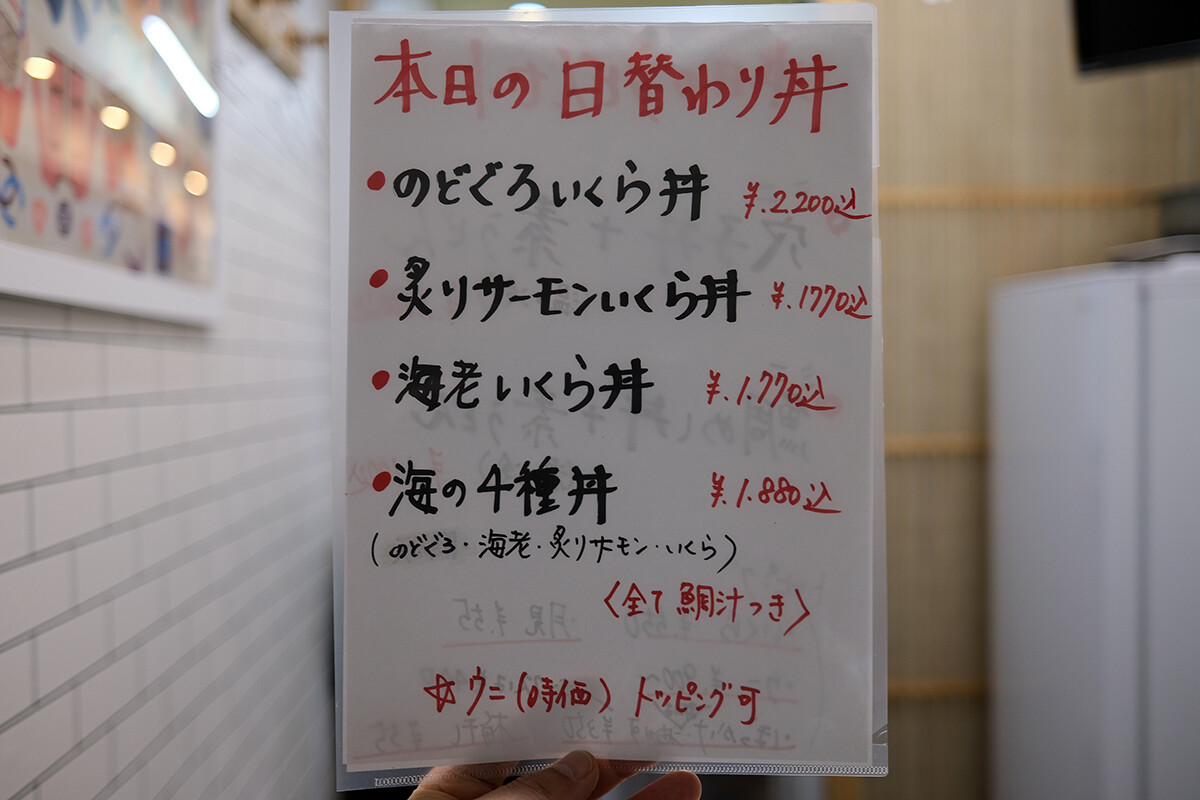 本日の日替わり丼
•のどぐろいくら丼 ¥.2200込
•炙りサーモンいくら丼 ¥.1770込
•海老いくら丼 ¥.1.770込
•海の4種丼 ¥.1.880込
(のどぐろ・海老・炙りサーモン・いくら)
〈全て鯛汁つき〉
☆ウニ(時価)トッピング可